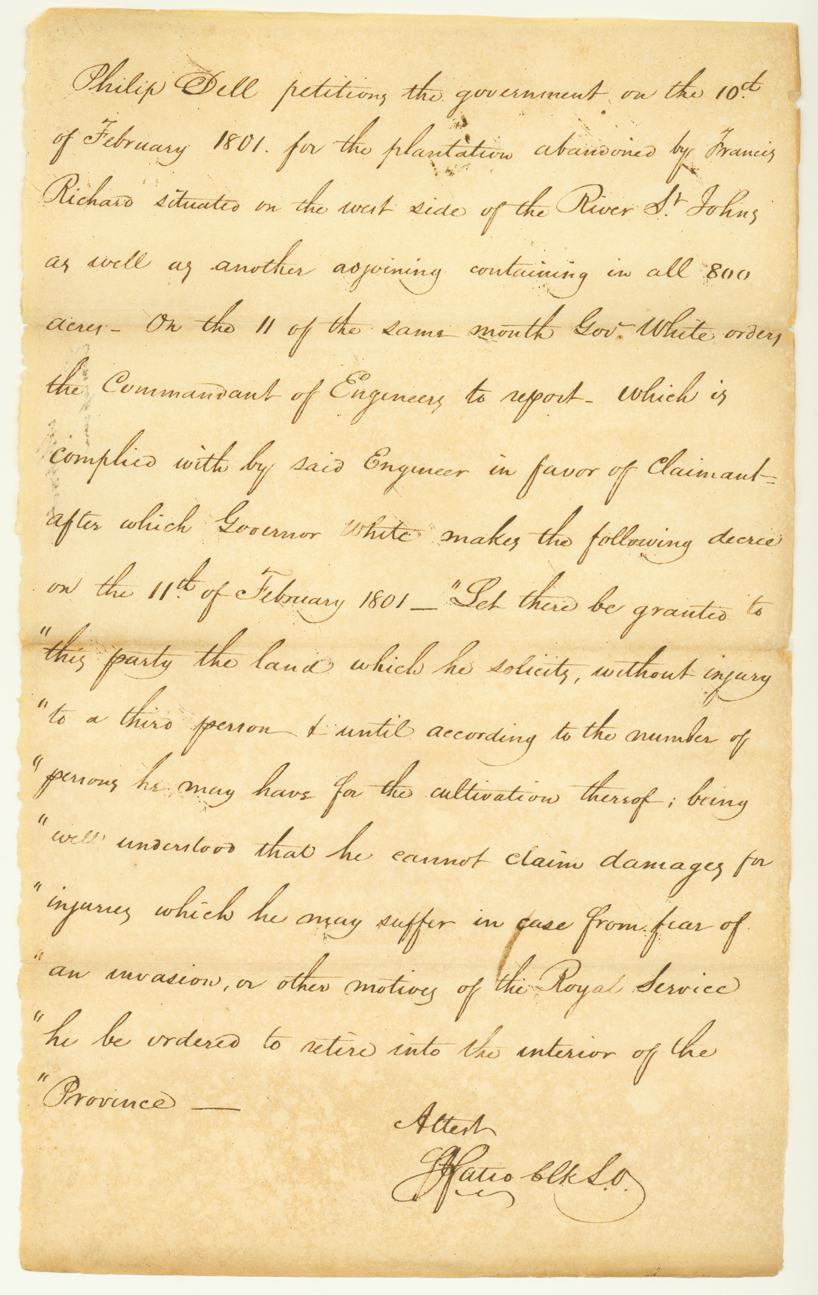 Philip Dell petitions the government on the 10th
of February 1801. for the plantation abandoned by Francis
Richard situated on the west side of the River St. Johns
as well as another adjoining containing in all 800
acres - On the 11 of the same month Gov. White orders
the Commandant of Engineers to report - which is
complied with by said Engineer in favor of Claimant -
after which Governor White makes the following decree
on the 11th of February 1801 — "Let there be granted to
"this party the land which he solicits, without injury
"to a third person & until according to the number of
"persons he may have for the cultivation thereof; being
"well understood that he cannot claim damages for
"injuries which he may suffer in case from fear of
"an invasion, or other motives of the Royal Service
"he be ordered to retire into the interior of the
"Province —
Attest
Fatio Clk S.O.